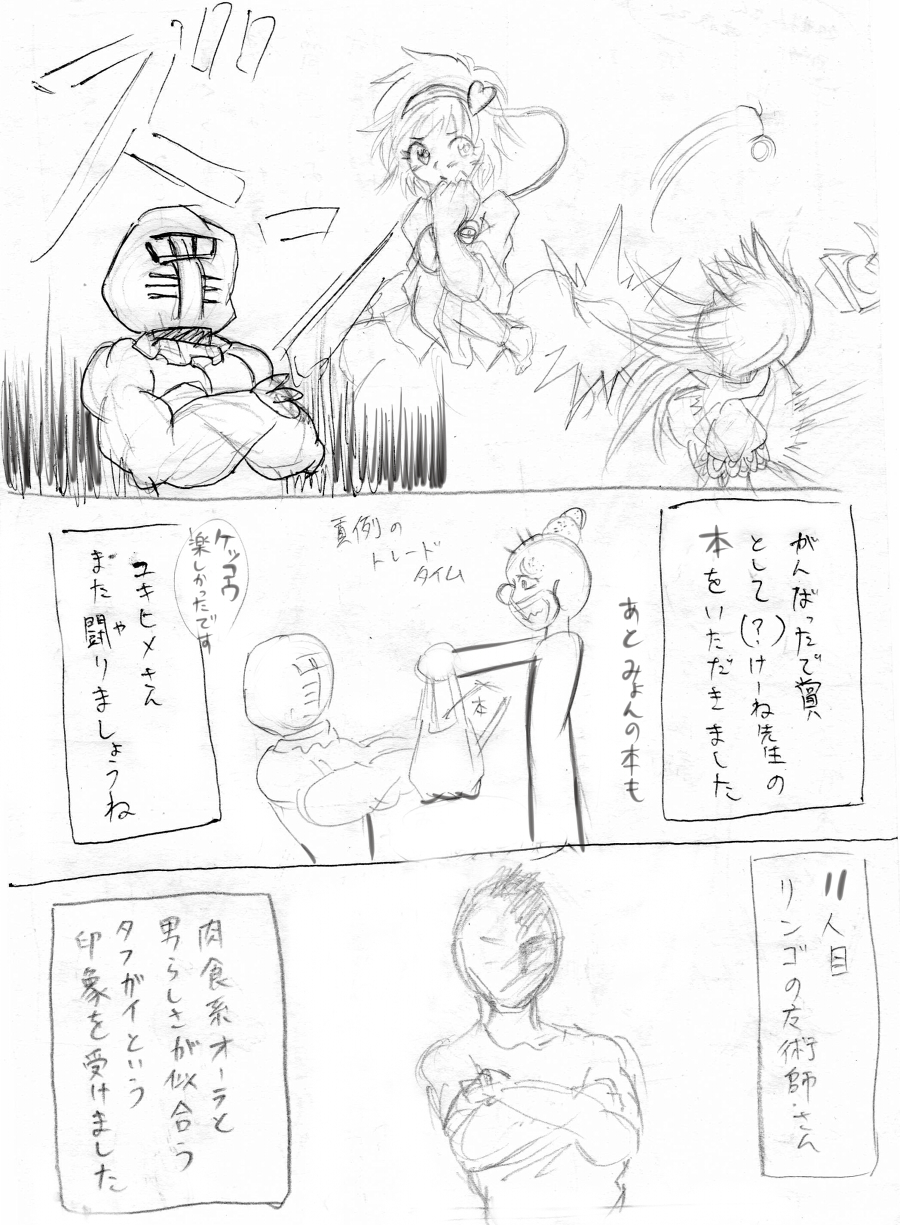 がんばったで賞
として(?)けーね先生の
本をいただきました
あとみょんの本も
恒例の
トレード
タイム
本
ケッコウ
楽しかったです
ユキヒメさん
また闘りましょうね
や
11人目
リンゴの友術師.さん
肉食系オーラと
男らしさが似合う
タフガイという
印象を受けました